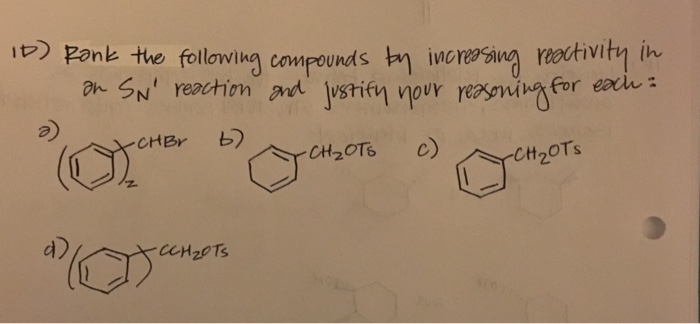 1b) Rank the following compounds by increasing reactivity in
an SN' reaction and justify your reasoning for each:
a) ( )2 CHBr b) CH2OTs c) CH2OTs
d) ( ) CCH2OTs